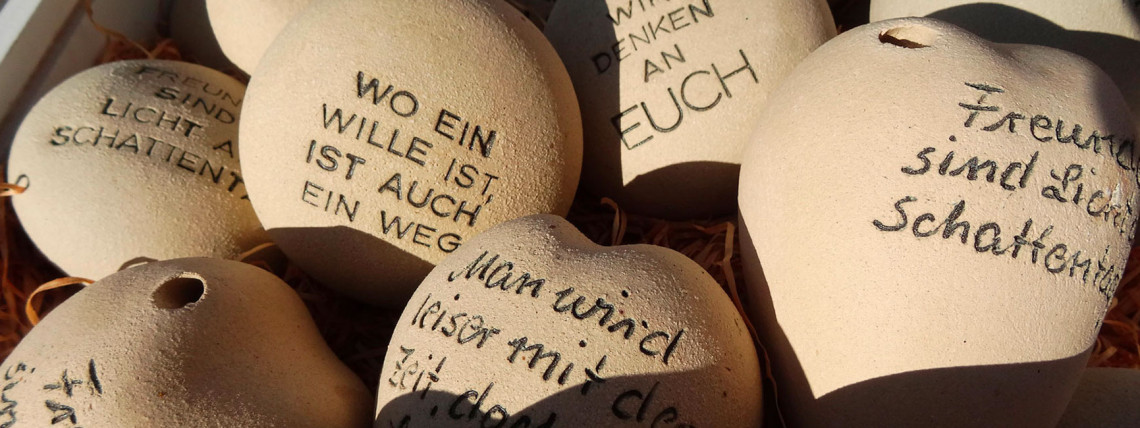 FREUN
SIND
LICHT A
SCHATTENT
WO EIN
WILLE IST,
IST AUCH
EIN WEG
WIR
DENKEN
AN
EUCH
Freund
sind Licht
Schattenta
Man wird
leiser mit de
Zeit, doch